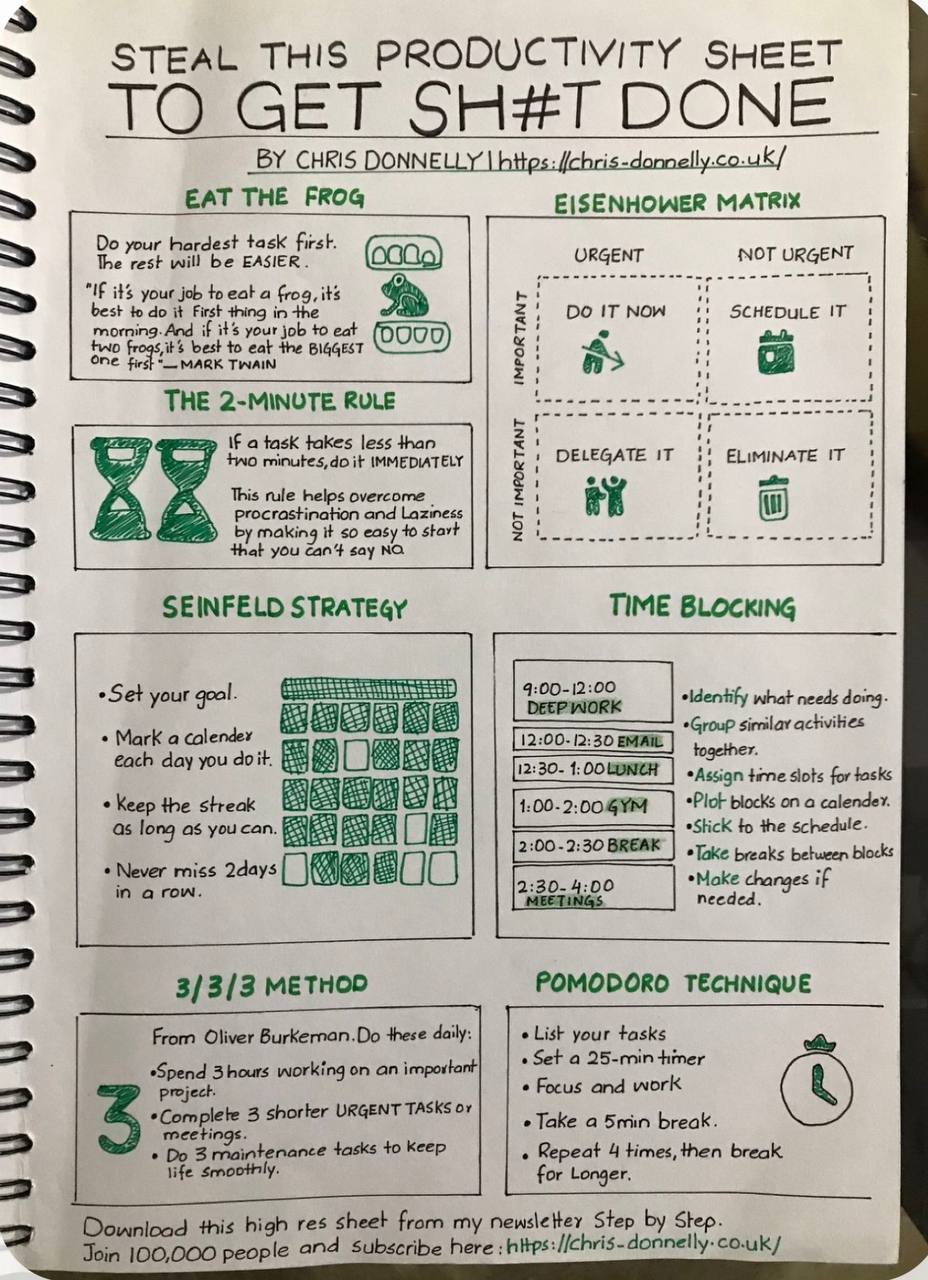 STEAL THIS PRODUCTIVITY SHEET
TO GET SH#T DONE
BY CHRIS DONNELLY | https://chris-donnelly.co.uk/
EAT THE FROG
Do your hardest task first.
The rest will be EASIER.
"If it's your job to eat a frog, it's
best to do it First thing in the
morning. And if it's your job to eat
two frogs, it's best to eat the BIGGEST
one first" — MARK TWAIN
THE 2-MINUTE RULE
If a task takes less than
two minutes, do it IMMEDIATELY
This rule helps overcome
procrastination and Laziness
by making it so easy to start
that you can't say NO.
EISENHOWER MATRIX
URGENT
NOT URGENT
IMPORTANT
DO IT NOW
SCHEDULE IT
NOT IMPORTANT
DELEGATE IT
ELIMINATE IT
SEINFELD STRATEGY
• Set your goal.
• Mark a calender
each day you do it.
• Keep the streak
as long as you can.
• Never miss 2days
in a row.
TIME BLOCKING
9:00-12:00
DEEP WORK
12:00-12:30 EMAIL
12:30-1:00 LUNCH
1:00-2:00 GYM
2:00-2:30 BREAK
2:30-4:00
MEETINGS
• Identify what needs doing.
• Group similar activities
together.
• Assign time slots for tasks
• Plot blocks on a calender.
• Stick to the schedule.
• Take breaks between blocks
• Make changes if
needed.
3/3/3 METHOD
From Oliver Burkeman. Do these daily:
3
• Spend 3 hours working on an important
project.
• Complete 3 shorter URGENT TASKS or
meetings.
• Do 3 maintenance tasks to keep
life smoothly.
POMODORO TECHNIQUE
• List your tasks
• Set a 25-min timer
• Focus and work
• Take a 5min break.
• Repeat 4 times, then break
for Longer.
Download this high res sheet from my newsletter Step by Step.
Join 100,000 people and subscribe here: https://chris-donnelly.co.uk/